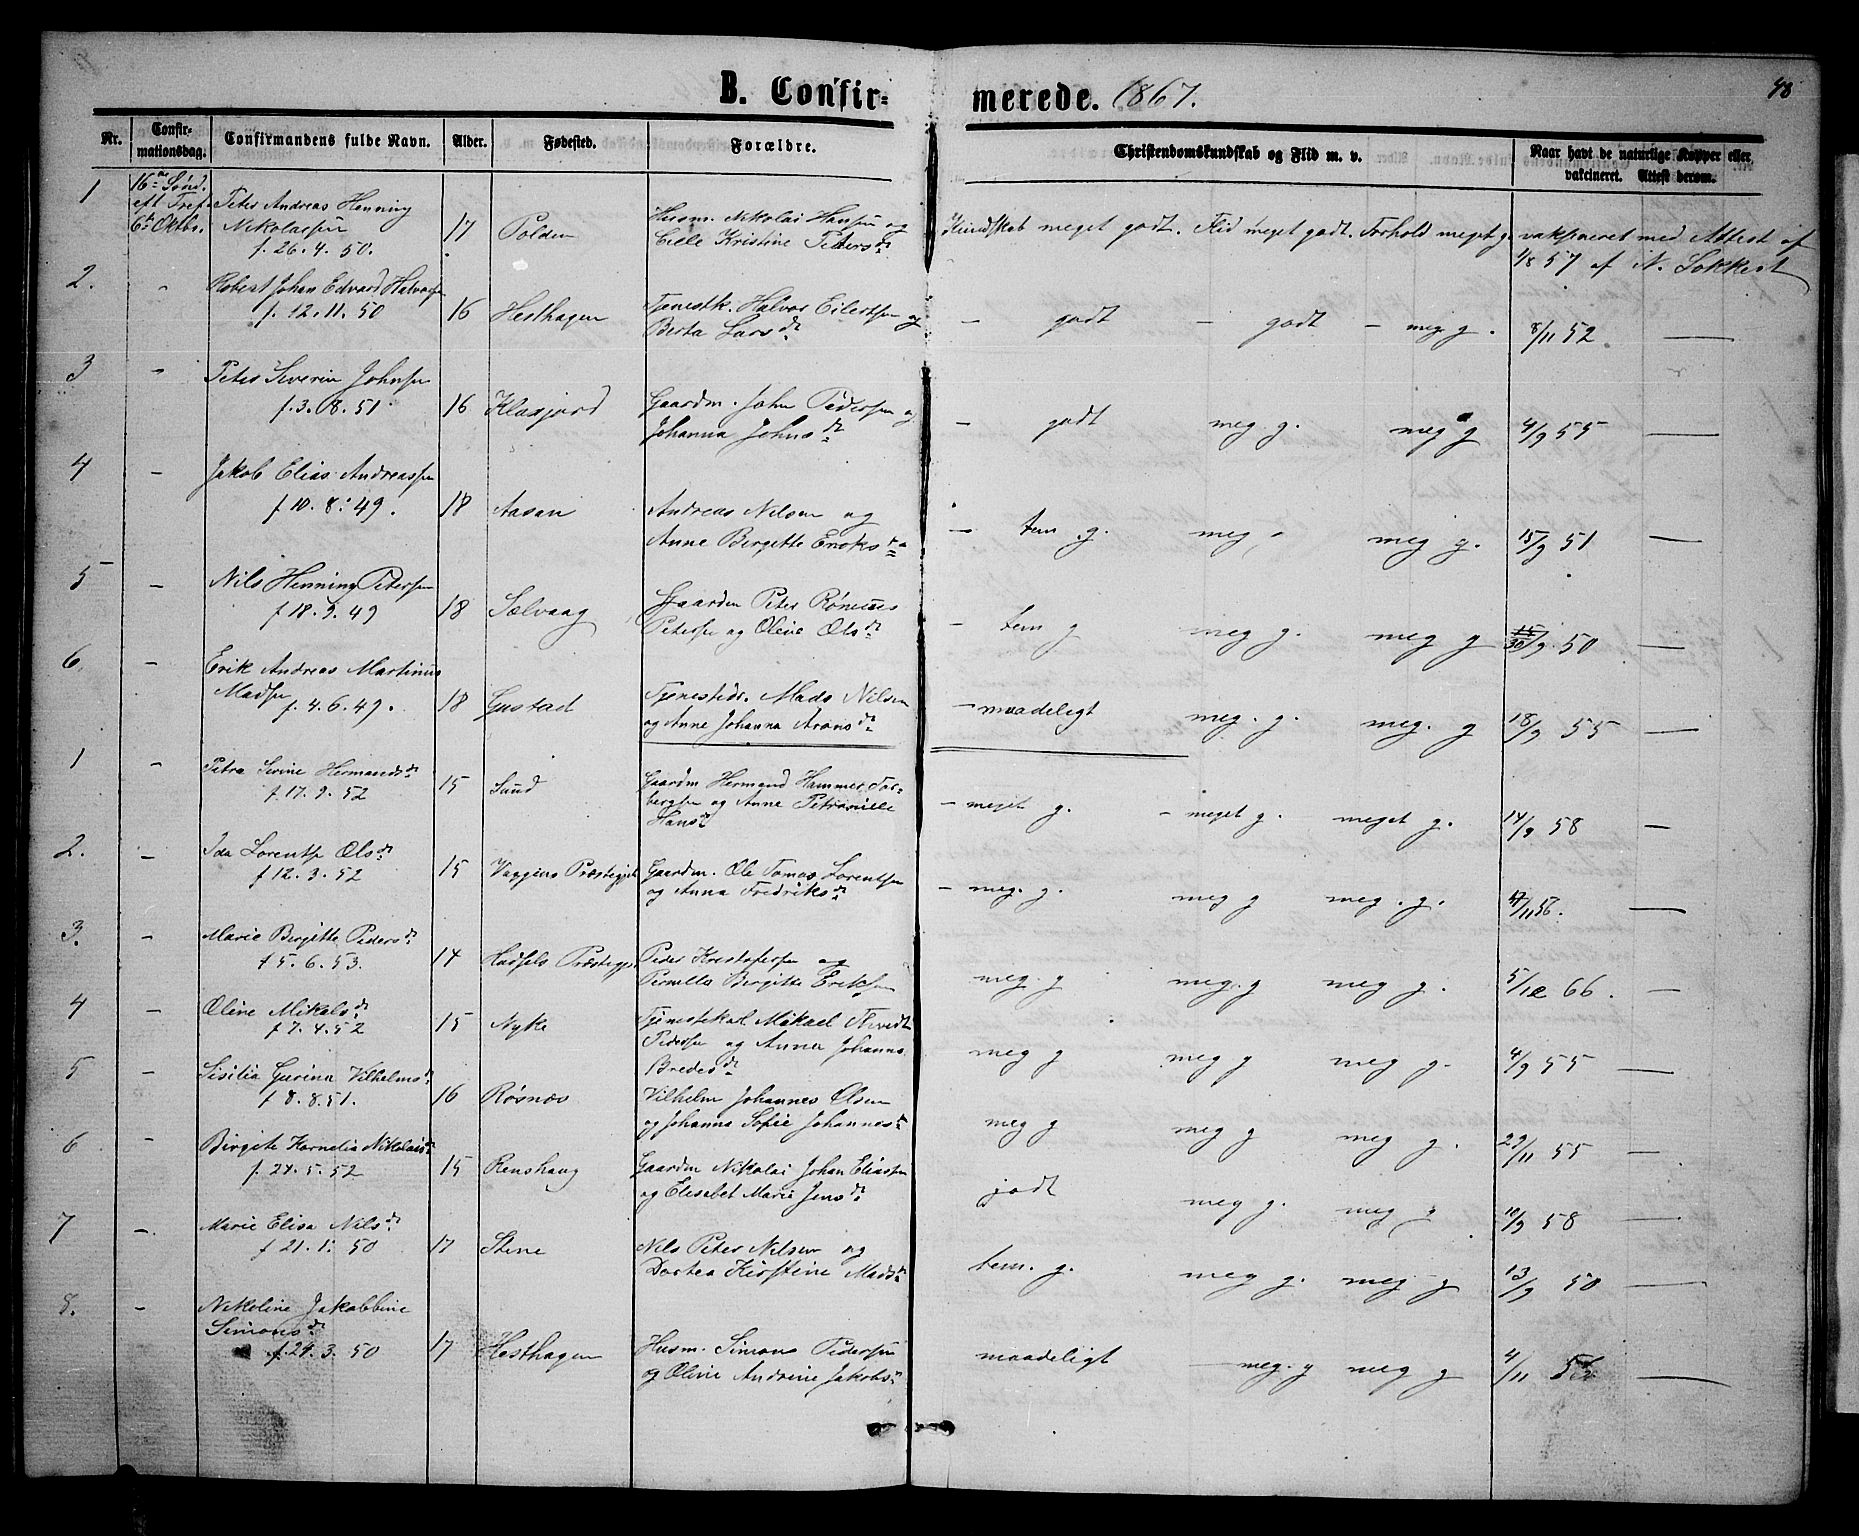 B. Confirmerede. 1867.
48
Nr. Confirmationsdag. Confirmandens fulde Navn. Alder. Fødested. Forældre. Christendomskundskab og Flid m. v. Naar havt de naturlige Kopper eller vakcineret. Attest derom.
1 16de Sønd. eft Tref. 6te Oktbr. Peter Andreas Henning
Nikolaisen 17 Polden Husm. Nikolai Hansen og
f. 26.4.50. Cecile Kristine Petersdr. Kundskab meget godt. Flid meget godt. Forhold meget g. vaksineret med Attest af
4/8 57 af N. Sokkest
2. " Robert Johan Edvard Halvorsen
f. 12.11.50 16 Hesthagen Tjenestk. Halvor Eilertsen og
Berta Larsdr. – godt – godt – meg g. 8/11 52. —
3 " Peter Severin Johnsen
f. 3.8.51. 16 Klaxjord Gaardm. John Pedersen og
Johanna Johnsdr. – godt meg. g. meg g 4/9 55 —
4 – Jakob Elias Andreassen
f 10.8.49. 18 Aasan Andreas Nilsen og
Anne Birgitte Enoksdr. – tem g. meg g meg g. 15/9 51 —
5 – Nils Henning Petersen
f 18.9.49 18 Sælvaag Gaardm Peter Rønæus
Petersen og Oline Olsdr. – tem g meg g. meg g 30/9 50 —
6. – Erik Andreas Martinus
Madsen f. 4.6.49. 18 Gustad Tjenestedr. Mads Nilsen
og Anne Johanna Aronsdr. – maadeligt meg. g. meg. g 18/9 55 —
1 – Petra Serine Hermandsdr.
f. 17.9.52 15 Sund Gaardm Hermand Hammer Torbergsen og Anne Petronille
Hansdr. – meget g. – meget g. meget g. 14/9 58 —
2. – Ida Lorentse Olsdr.
f 12.3.52 15 Vaagens Præstegjeld Gaardm. Ole Tomas Lorentsen
og Anna Fredriksdr. – meg. g. meg g meg. g. 17/11 56. —
3. – Marie Birgitte Pedersdr.
f 5.6.53. 14 Hadsels Præstegjeld Peder Kristofersen og
Pernille Birgitte Eriksen meg. g meg. g meg g. 5/12 66. —
4 – Oline Mikalsdr.
f 7.4.52 15 Nyke Tjenestekarl Mikael Tivedt
Pedersen og Anne Johanna
Bredesdr. meg g meg g meg g. 4/9 55 —
5 – Sisilia Gurina Vilhelmsdr.
f 8.8.51. 16 Røsnæs Vilhelm Johannes Olsen
og Johanna Sofie Johannesdr. meg g meg g meg g. 29/11 55 —
6 – Birgite Kornelia Nikolaisdr.
f. 24.5.52 15 Renshaug Gaardm Nikolai Johan Eliassen
og Elisabet Marie Jensdr. godt meg g. meg g 10/9 58 —
7 – Marie Elisa Nilsdr.
f 21.1.50 17 Stene Nils Peter Nilsen og
Dortea Kirstine Madsdr. tem. g. meg g. meg g 13/9 50 —
8. – Nikoline Jakobbine
Simonsdr.
f. 24.3.50 17 Hesthagen Husm. Simons Pedersen
og Oline Andrine Jakobsdr. maadeligt meg. g meg g 4/11 52 —